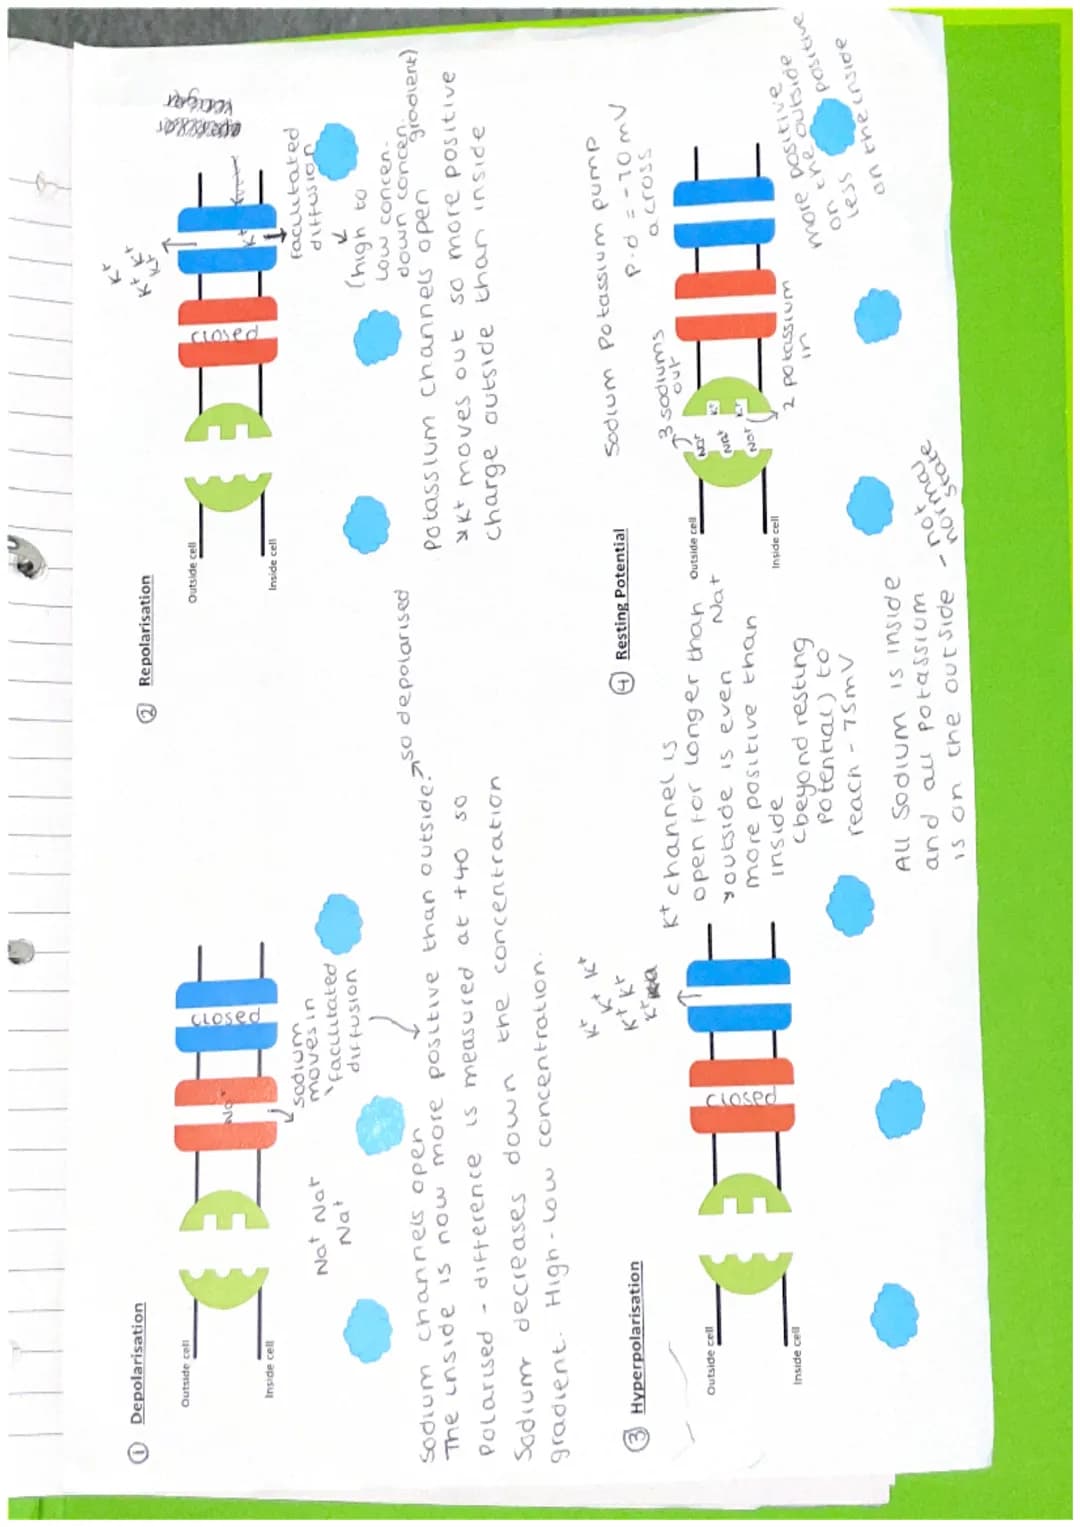 ① Depolarisation
Outside cell
closed
Na+
Inside cell
sodium
moves in
facilitated
diffusion
Na+ Na+
Na+
Sodium channels open
The inside is now more positive than outside. → so depolarised
Polarised - difference is measured at +40 so
Sodium decreases down the concentration
gradient. High-low concentration.
② Repolarisation
K+
K+ K+
K+
Outside cell
closed
K+
Inside cell
facilitated
diffusion
(high to
low concen.
down concen.
gradient)
Potassium channels open
K+ moves out so more positive
charge outside than inside
③ Hyperpolarisation
K+ K+ K+
K+ K+
K+
Outside cell
closed
Inside cell
K+ channel is
open for longer than
outside is even
more positive than
inside
(beyond resting
potential) to
reach -75mV
④ Resting Potential
Sodium Potassium pump
p.d = -70mV
across
3 sodiums
out
Outside cell
Na+
Na+
Na+
Na+
K+
K+
Inside cell
2 potassium
in
more positive
on the outside
less positive
on the inside
All Sodium is inside
and all potassium
is on the outside - not normal state